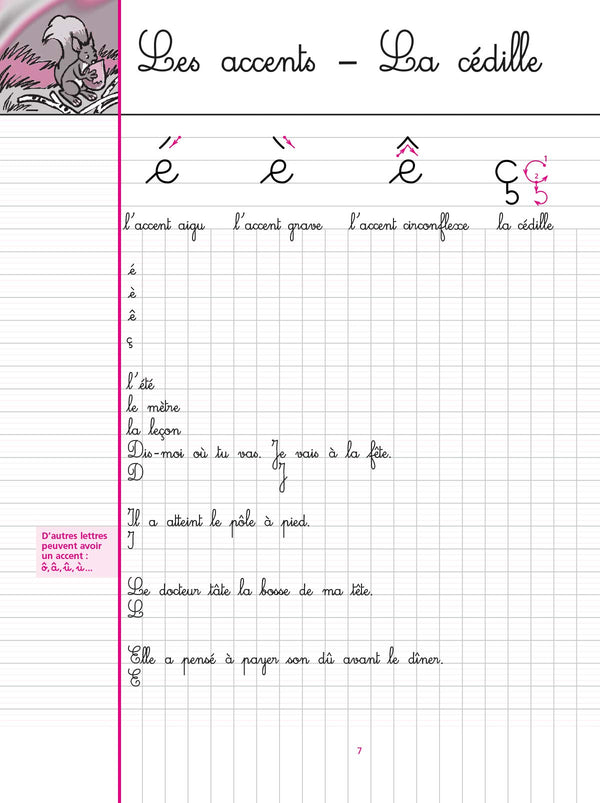 Les accents – La cédille
é è ê ç ç 1 2
l'accent aigu l'accent grave l'accent circonflexe la cédille
é
è
ê
ç
l'été
le mètre
la leçon
Dis-moi où tu vas. Je vais à la fête.
D J
Il a atteint le pôle à pied.
I
D'autres lettres
peuvent avoir
un accent :
ô, â, û, ù...
Le docteur tâte la bosse de ma tête.
L
Elle a pensé à payer son dû avant le dîner.
E
7